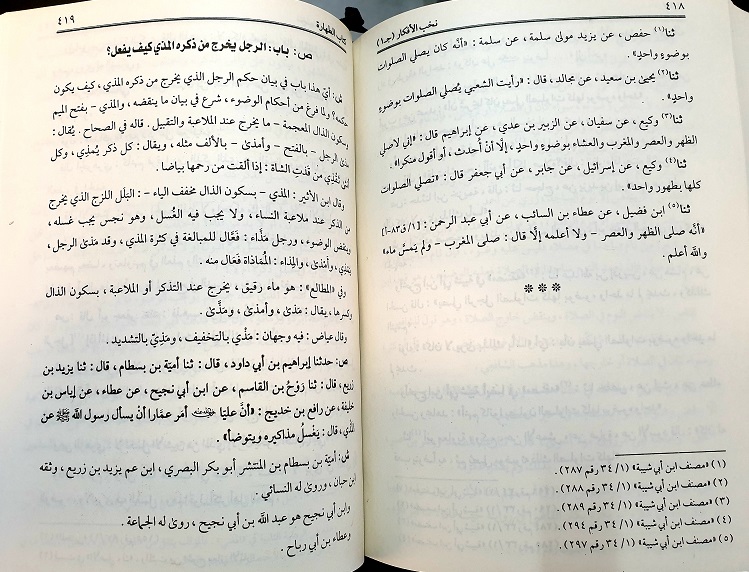 ٤١٨
نخب الأفكار (جـ١)
ثنا(١) حفص، عن يزيد مولى سلمة، عن سلمة: «أنَّه كان يصلي الصلوات
بوضوءٍ واحدٍ».
ثنا(٢) يحيى بن سعيد، عن مجالد، قال: «رأيت الشعبي يُصلي الصلوات بوضوءٍ
واحدٍ».
ثنا(٣) وكيع، عن سفيان، عن الزبير بن عدي، عن إبراهيم قال: «إني لاصلي
الظهر والعصر والمغرب والعشاء بوضوءٍ واحدٍ، إلَّا أنْ أُحدث، أو أقول منكرا».
ثنا(٤) وكيع، عن إسرائيل، عن جابر، عن أبي جعفر قال: «تصلي الصلوات
كلها بطهور واحد».
ثنا(٥) ابن فضيل، عن عطاء بن السائب، عن أبي عبد الرحمن: [١/ق٨٣-أ]
«أنَّه صلى الظهر والعصر - ولا أعلمه إلَّا قال: صلى المغرب - ولم يَمَسَّ ماء»
والله أعلم.
***
(١) «مصنف ابن أبي شيبة» (١/ ٣٤ رقم ٢٨٧).
(٢) «مصنف ابن أبي شيبة» (١/ ٣٤ رقم ٢٨٨).
(٣) «مصنف ابن أبي شيبة» (١/ ٣٤ رقم ٢٨٩).
(٤) «مصنف ابن أبي شيبة» (١/ ٣٤ رقم ٢٩٤).
(٥) «مصنف ابن أبي شيبة» (١/ ٣٤ رقم ٢٩٧).
كتاب الطهارة
٤١٩
ص: باب: الرجل يخرج من ذكره المذي كيف يفعل؟
ش: أيْ هذا باب في بيان حكم الرجل الذي يخرج من ذكره المذي، كيف يكون
حكمه؟ ولما فرغ من أحكام الوضوء، شرع في بيان ما ينقضه، والمذي - بفتح الميم
وسكون الذال المعجمة - ما يخرج عند الملاعبة والتقبيل. قاله في الصحاح. يُقال:
مذى الرجل - بالفتح - وأمذى - بالألف مثله، ويقال: كل ذكر يُمذِي، وكل
أنثى تُقْذِي من قذتِ الشاة: إذا ألقت من رحمها بياضا.
وقال ابن الأثير: المذي - بسكون الذال مخفف الياء -: البَلَل اللزج الذي يخرج
من الذكر عند ملاعبة النساء، ولا يجب فيه الغُسل، وهو نجس يجب غسله،
وينقض الوضوء، ورجل مَذَّاء: فَعَّال للمبالغة في كثرة المذي، وقد مَذى الرجل،
يَمذِي، وأمْذى، والمِذاء: المُمَاذاة فِعال منه.
وفي «المطالع»: هو ماء رقيق، يخرج عند التذكر أو الملاعبة، بسكون الذال
وكسرها، يقال: مَذى، وأمذى، ومَذَّى.
وقال عياض: فيه وجهان: مَذْي بالتخفيف، ومَذِيّ بالتشديد.
ص: حدثنا إبراهيم بن أبي داود، قال: ثنا أميّة بن بسطام، قال: ثنا يزيد بن
زريع، قال: ثنا رَوْحُ بن القاسم، عن ابن أبي نجيح، عن عطاء، عن إياس بن
خليفة، عن رافع بن خديج: «أنَّ عليًّا رضي الله عنه أمر عمَّارا أنْ يسأل رسول الله ﷺ عن
المَذْي، قال: يغْسلُ مذاكيره ويتوضأ».
ش: أميّة بن بسطام بن المنتشر أبو بكر البصري، ابن عم يزيد بن زريع، وثقه
ابن حبان، وروى له النسائي.
وابن أبي نجيح هو عبد الله بن أبي نجيح، روى له الجماعة.
وعطاء بن أبي رباح.